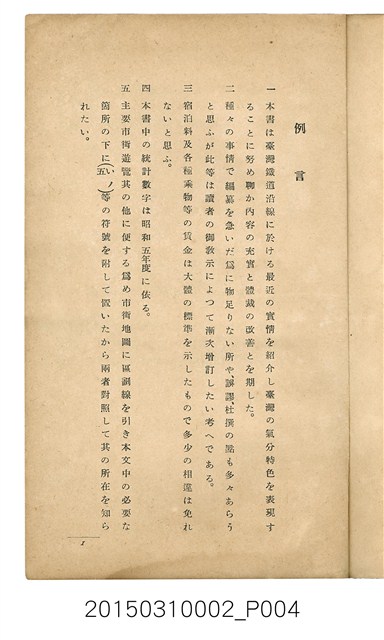 例言
一 本書は臺灣鐵道沿線に於ける最近の實情を紹介し臺灣の氣分特色を表現す
ることに努め聊か內容の充實と體裁の改善とを期した。
二 種々の事情で編纂を急いだ爲に物足りない所や、誤謬、杜撰の點も多々あらう
と思ふが此等は讀者の御敎示によつて漸次增訂したい考へである。
三 宿泊料及各種乘物等の賃金は大體の標準を示したもので多少の相違は免れ
ないと思ふ。
四 本書中の統計數字は昭和五年度に依る。
五 主要市街遊覽其の他に便する爲め市街地圖に區劃線を引き本文中の必要な
箇所の下に(い ノ 五)等の符號を附して置いたから兩者對照して其の所在を知ら
れたい。
1
20150310002_P004